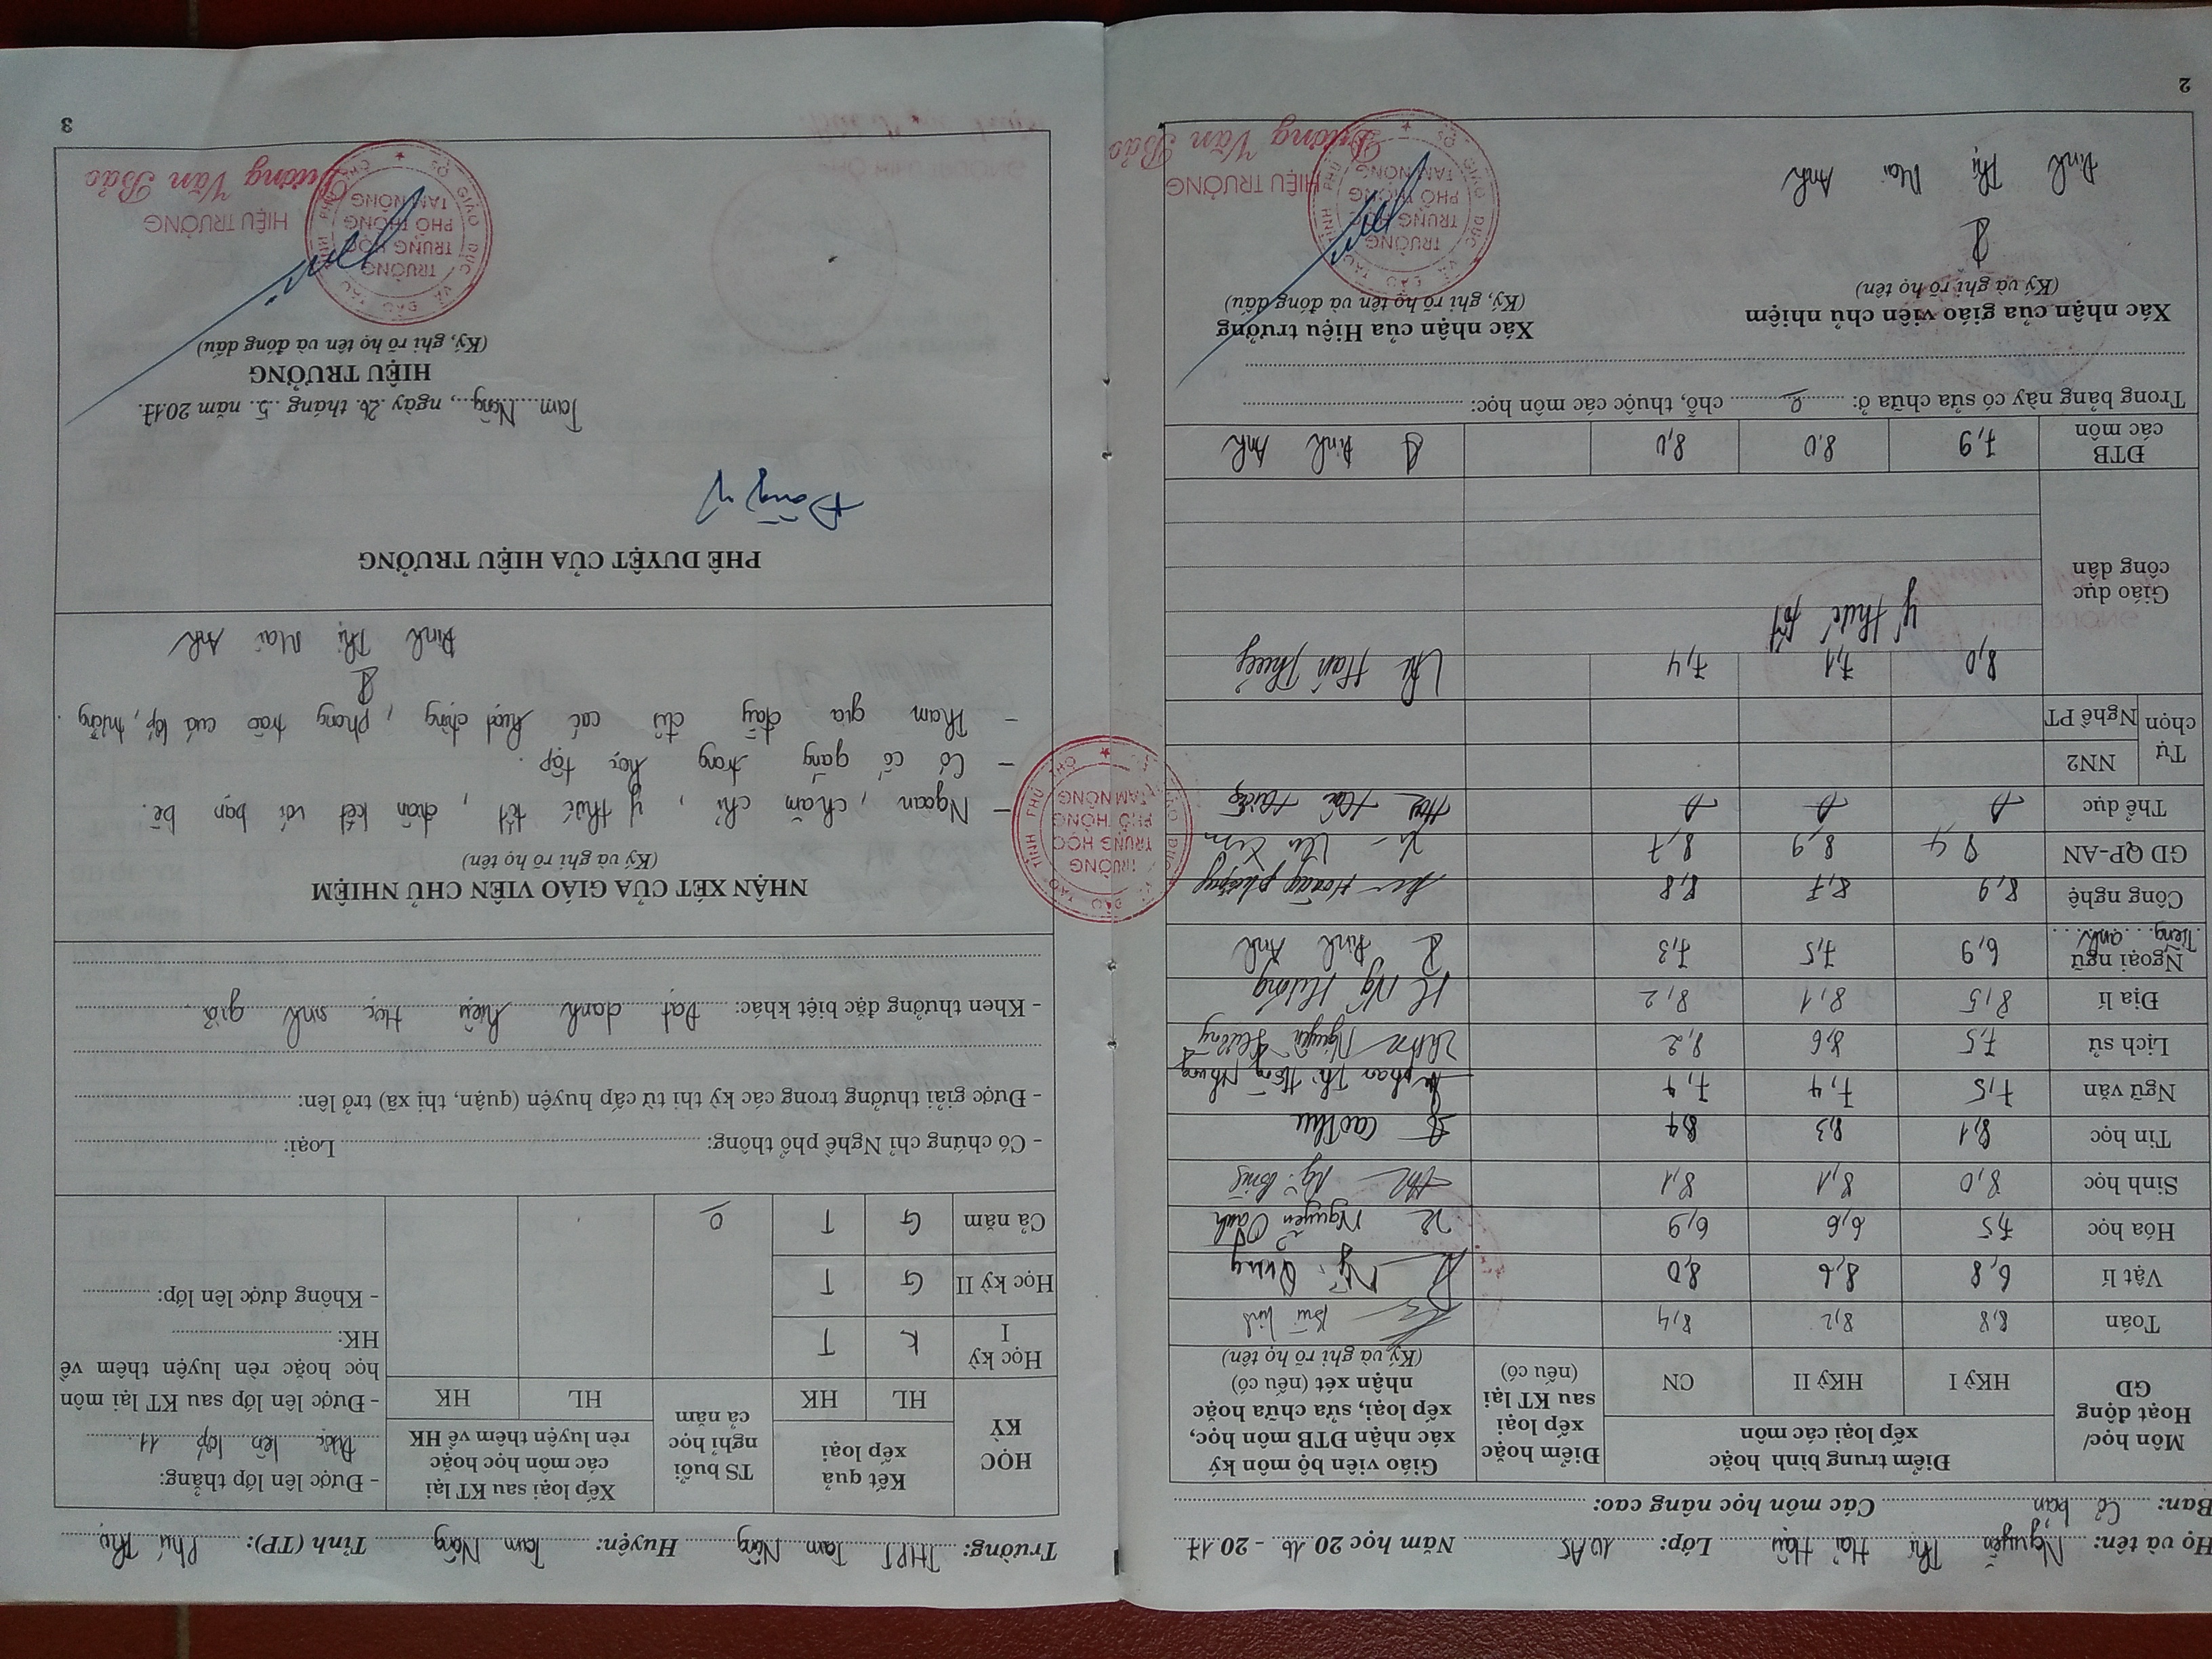 Họ và tên: Nguyễn Thị Hải Hậu Lớp: 10A5 Năm học 2016 - 2017
Ban: Cơ bản Các môn học nâng cao:
Môn học/ Hoạt động GD
Điểm trung bình hoặc xếp loại các môn
HKỳ I HKỳ II CN
Điểm hoặc xếp loại sau KT lại (nếu có)
Giáo viên bộ môn ký xác nhận ĐTB môn học, xếp loại, sửa chữa hoặc nhận xét (nếu có)
(Ký và ghi rõ họ tên)
Toán 8,8 8,2 8,4 Bùi Linh
Vật lí 6,8 8,6 8,0 Ng. Quang
Hóa học 7,5 6,6 6,9 Nguyễn Oanh
Sinh học 8,0 8,1 8,1
Tin học 8,1 8,3 8,4 Cao Thu
Ngữ văn 7,5 7,4 7,4 Phan Thị Hồng Nhung
Lịch sử 7,5 8,6 8,2 Nguyễn Hường
Địa lí 8,5 8,1 8,2 Ng Hương
Ngoại ngữ
Tiếng anh 6,9 7,5 7,3 Đinh Anh
Công nghệ 8,9 8,7 8,8 Hoàng Phượng
GD QP-AN 8,4 8,9 8,7
Thể dục
Tự chọn NN2
Nghề PT
Giáo dục công dân 8,0 7,1 7,4 Hán Thủy
ý thức tốt
ĐTB các môn 7,9 8.0 8,0 Đinh Anh
Trong bảng này có sửa chữa ở: 0 chỗ, thuộc các môn học:
Xác nhận của giáo viên chủ nhiệm
(Ký và ghi rõ họ tên)
Đinh Thị Mai Anh
Xác nhận của Hiệu trưởng
(Ký, ghi rõ họ tên và đóng dấu)
SỞ GIÁO DỤC VÀ ĐÀO TẠO TỈNH PHÚ THỌ
TRƯỜNG
TRUNG HỌC
PHỔ THÔNG
TAM NÔNG
HIỆU TRƯỞNG
Dương Văn Bảo
2
Trường: THPT Tam Nông Huyện: Tam Nông Tỉnh (TP): Phú Thọ
HỌC KỲ
Kết quả xếp loại
HL HK
TS buổi nghỉ học cả năm
Xếp loại sau KT lại các môn học hoặc rèn luyện thêm về HK
HL HK
Học kỳ I K T
Học kỳ II G T
Cả năm G T 0
- Được lên lớp thẳng:
Được lên lớp 11
- Được lên lớp sau KT lại môn
học hoặc rèn luyện thêm về
HK:
- Không được lên lớp:
- Có chứng chỉ Nghề phổ thông: Loại:
- Được giải thưởng trong các kỳ thi từ cấp huyện (quận, thị xã) trở lên:
- Khen thưởng đặc biệt khác: Đạt danh hiệu Học sinh giỏi.
NHẬN XÉT CỦA GIÁO VIÊN CHỦ NHIỆM
(Ký và ghi rõ họ tên)
- Ngoan, chăm chỉ, ý thức tốt, đoàn kết với bạn bè.
- Có cố gắng trong học tập.
- Tham gia đầy đủ các hoạt động, phong trào của lớp, trường.
Đinh Thị Mai Anh
SỞ GIÁO DỤC VÀ ĐÀO TẠO TỈNH PHÚ THỌ
TRƯỜNG
TRUNG HỌC
PHỔ THÔNG
TAM NÔNG
PHÊ DUYỆT CỦA HIỆU TRƯỞNG
Đồng ý
Tam Nông, ngày 26 tháng 5 năm 2017.
HIỆU TRƯỞNG
(Ký, ghi rõ họ tên và đóng dấu)
SỞ GIÁO DỤC VÀ ĐÀO TẠO TỈNH PHÚ THỌ
TRƯỜNG
TRUNG HỌC
PHỔ THÔNG
TAM NÔNG
HIỆU TRƯỞNG
Dương Văn Bảo
3